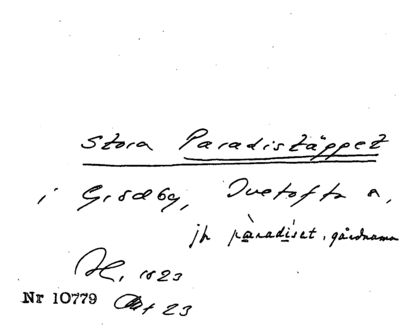 Stora Paradistäppet
i Gisdby, Tuetofta o,
jfr pàradíset, gårdnamn
H, 1823
Nr 10779 Akt 23